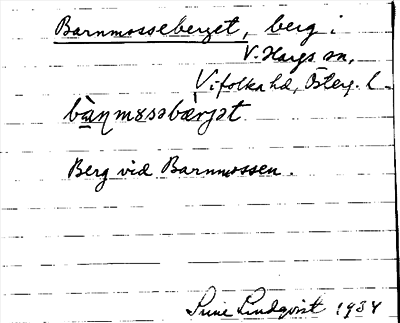 Barnmosseberget, berg i
V. Hargs sn,
Vifolka hd, Österg. l.
bàɳmɷsəbæ̀rjət
Berg vid Barnmossen.
Sune Lindqvist 1934